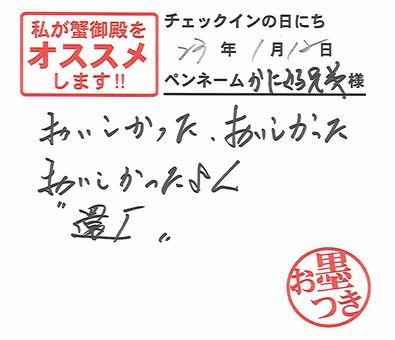 私が蟹御殿を
オススメ
します!!
チェックインの日にち
23年1月12日
ペンネームかにざる兄弟様
おいしかった、おいしかった
おいしかった♪
墨
お つき